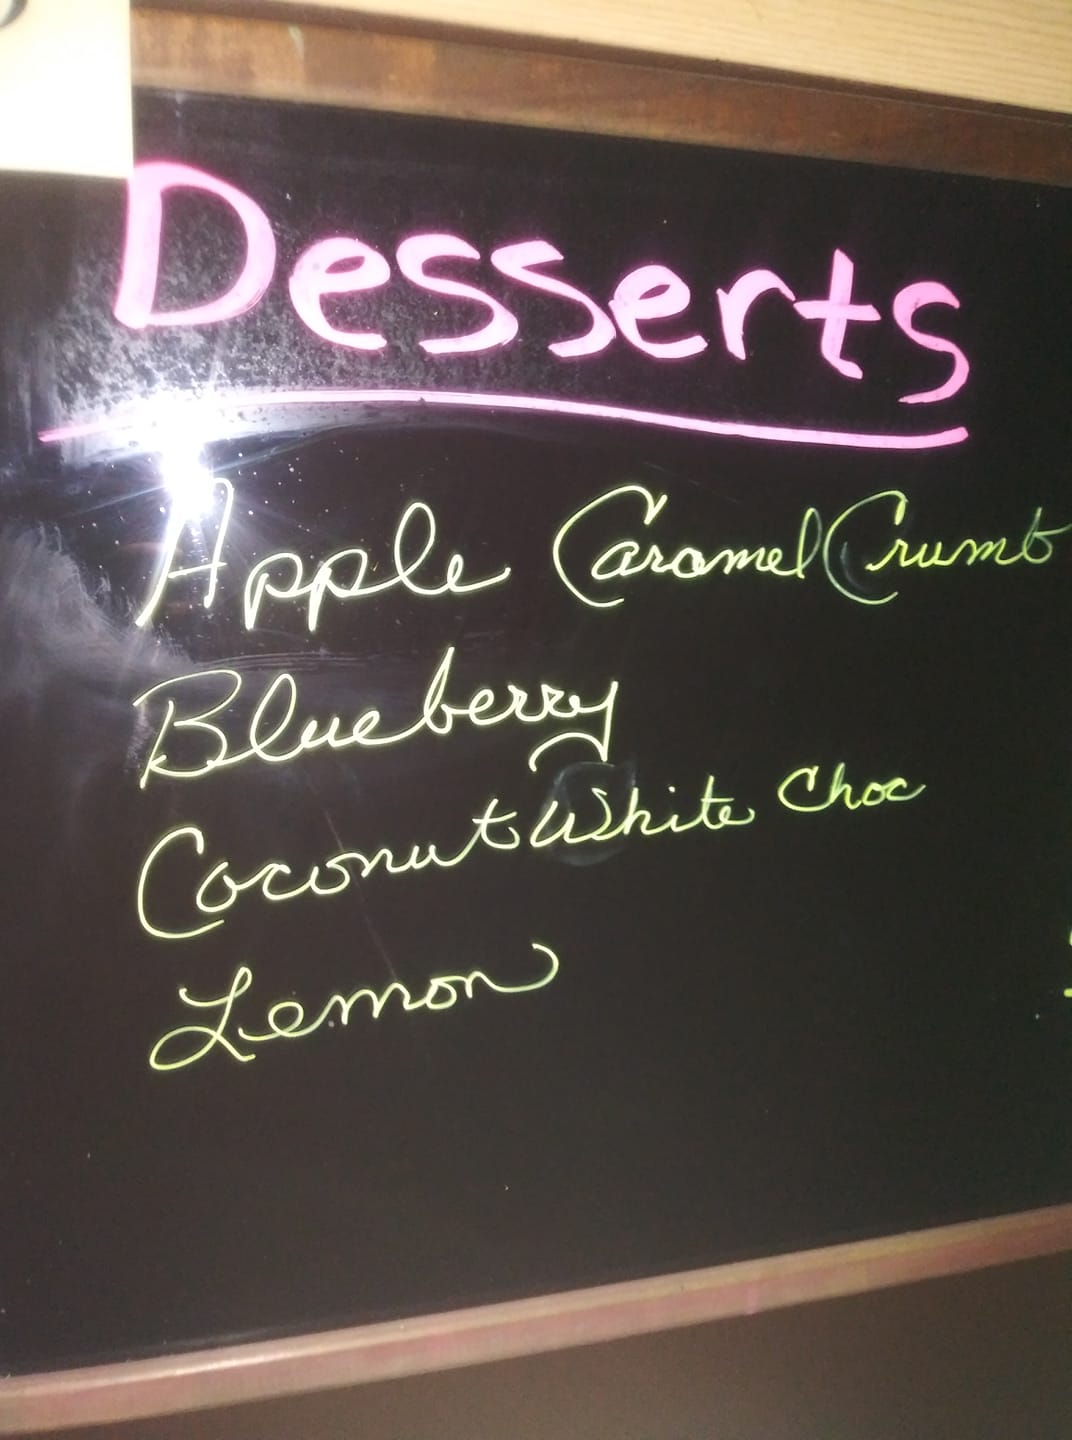 Desserts
Apple Caramel Crumb
Blueberry
Coconut White Choc
Lemon